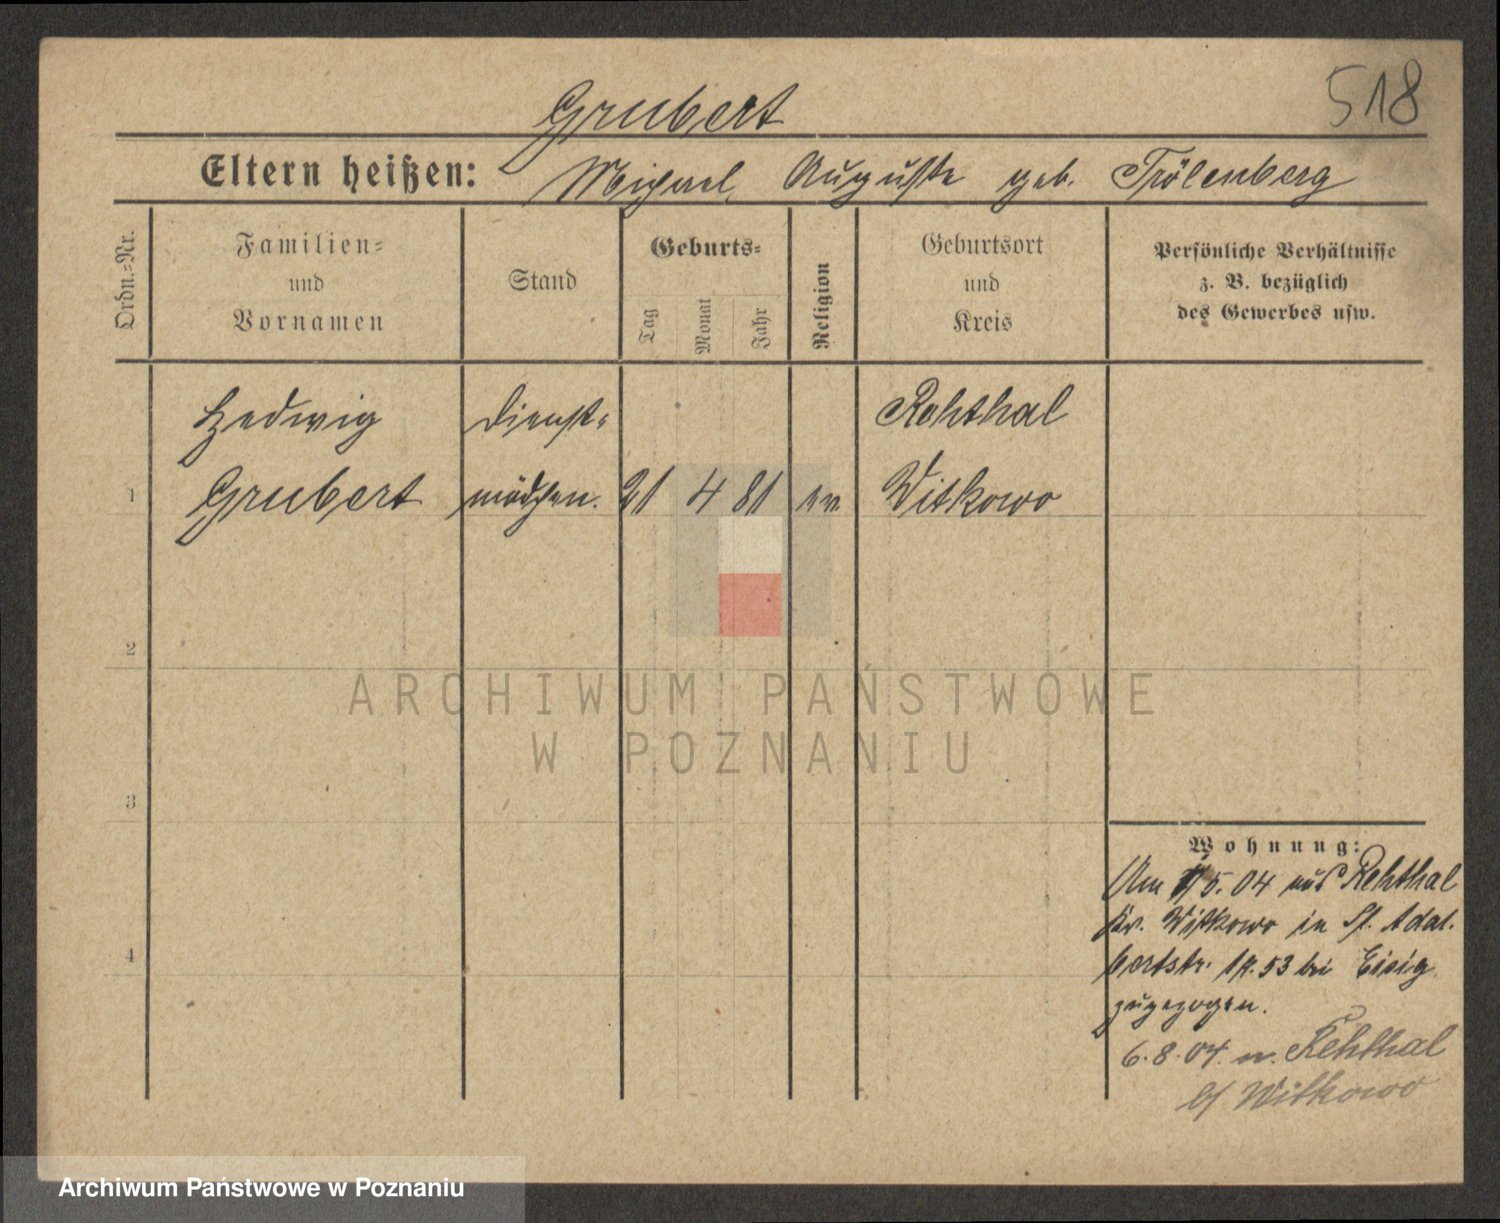 518
Grubert
Eltern heißen: Michael, Auguste geb. Trölenberg
Ordn.=Nr.
Familien=
und
Vornamen
Stand
Geburts=
Tag
Monat
Jahr
Religion
Geburtsort
und
Kreis
Persönliche Verhältnisse
z. B. bezüglich
des Gewerbes usw.
Hedwig Dienst= Rehthal
1 Grubert mädchen. 21 4 81 ev Witkowo
2
ARCHIWUM PAŃSTWOWE
W POZNANIU
3
Wohnung:
Am 5. 04 aus Rehthal
Kr. Witkowo in St. Adal.
4
bertstr. 53 bei Eisig
zugezogen.
6.8.04. n. Rehthal
b/ Witkowo
Archiwum Państwowe w Poznaniu